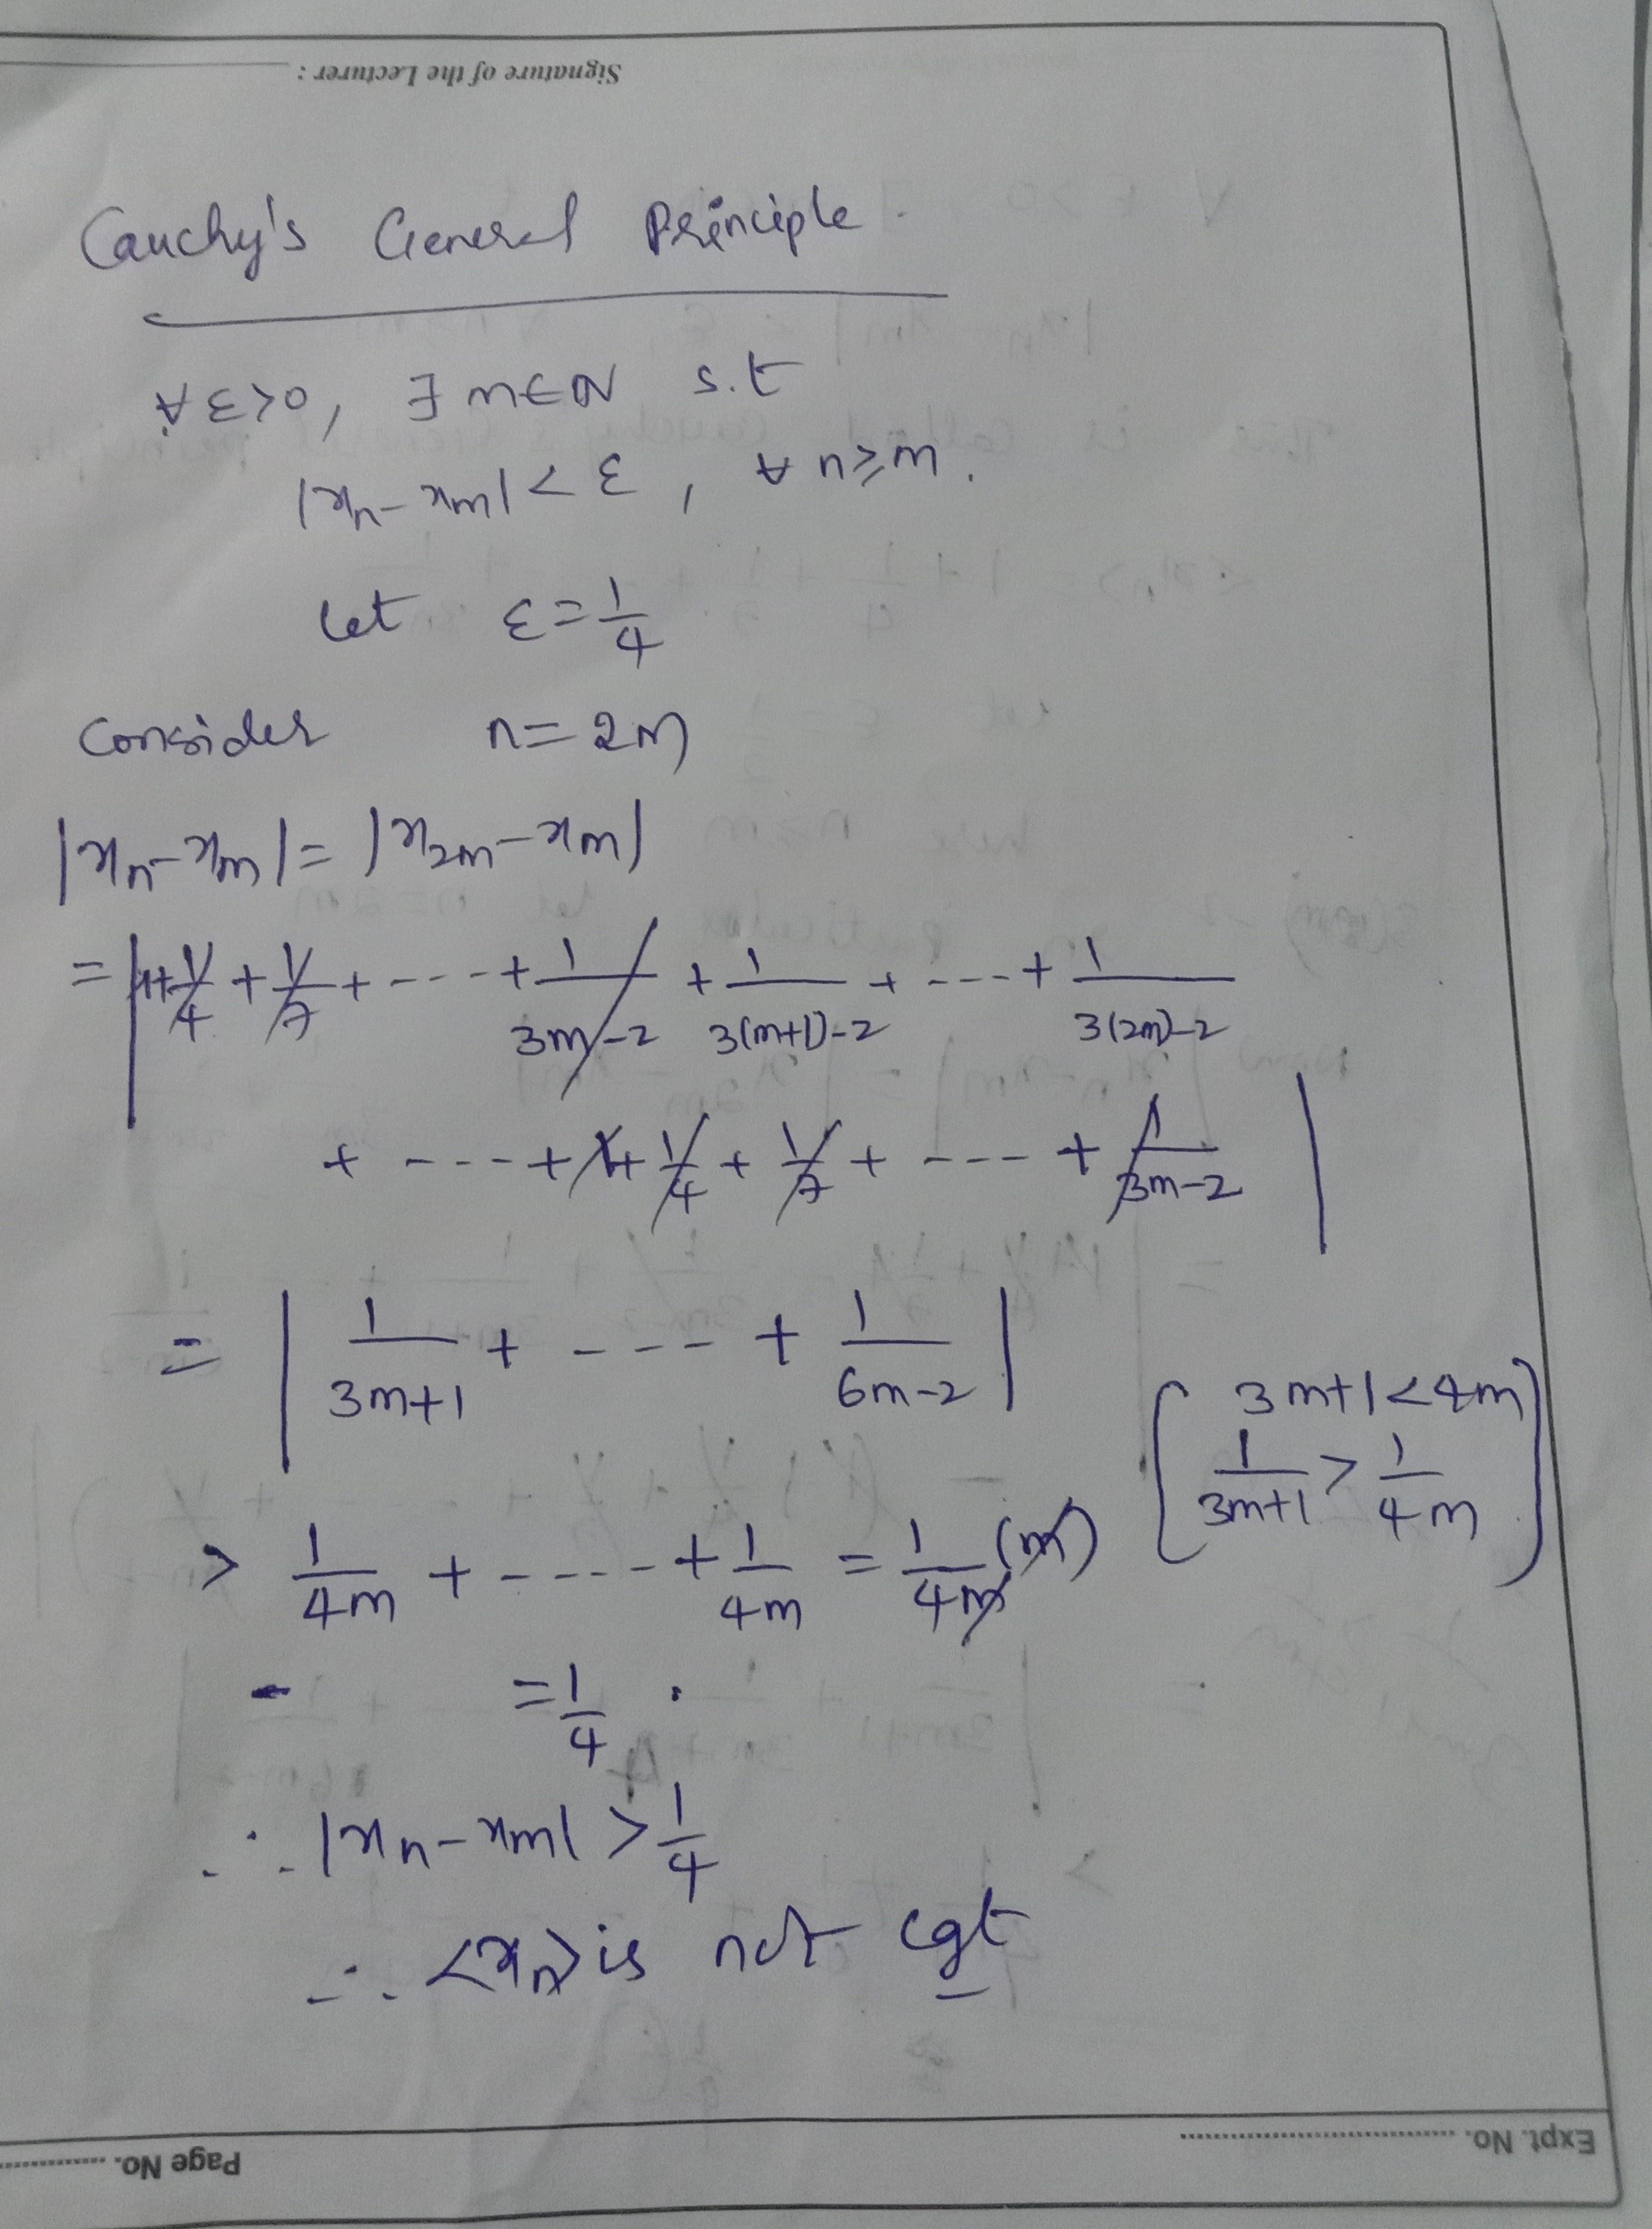 Signature of the Lecturer :
Cauchy's General Principle
∀ ε>0, ∃ m∈N s.t
|xn - xm| < ε, ∀ n≥m.
Let ε = 1/4
Consider n = 2m
|xn - xm| = |x2m - xm|
= |1 + 1/4 + 1/7 + ---- + 1/(3m-2) + 1/(3(m+1)-2) + ---- + 1/(3(2m)-2)
+ ---- + 1 + 1/4 + 1/7 + ---- + 1/(3m-2)|
= |1/(3m+1) + ---- + 1/(6m-2)|
[3m+1 < 4m
1/(3m+1) > 1/4m]
> 1/4m + ---- + 1/4m = 1/4m (m)
= 1/4.
∴ |xn - xm| > 1/4
∴ <xn> is not cgt
Expt. No.
Page No.